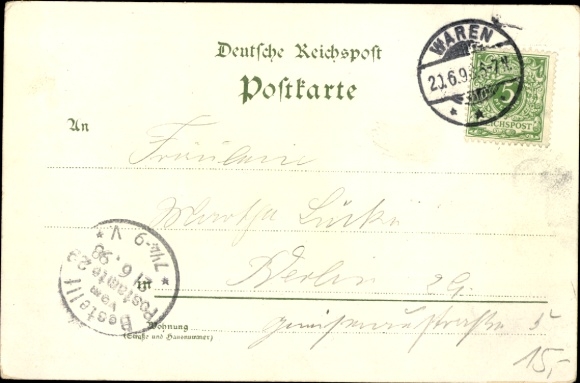 Deutsche Reichspost
Postkarte
WAREN
20.6.9
5
REICHSPOST
An
Fräulein
Martha Lücke
Berlin 29.
in
Gneisenaustraße 5
Wohnung
(Straße und Hausnummer)
Bestellt
vom
Postamte 29
21.6.98
7¼-9 V
15,-